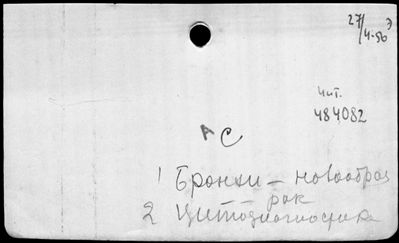 27/4-50 Э
Чит.
484,082
А С
1 Бронхи – новообраз
– рак
2 Цитодиагностика